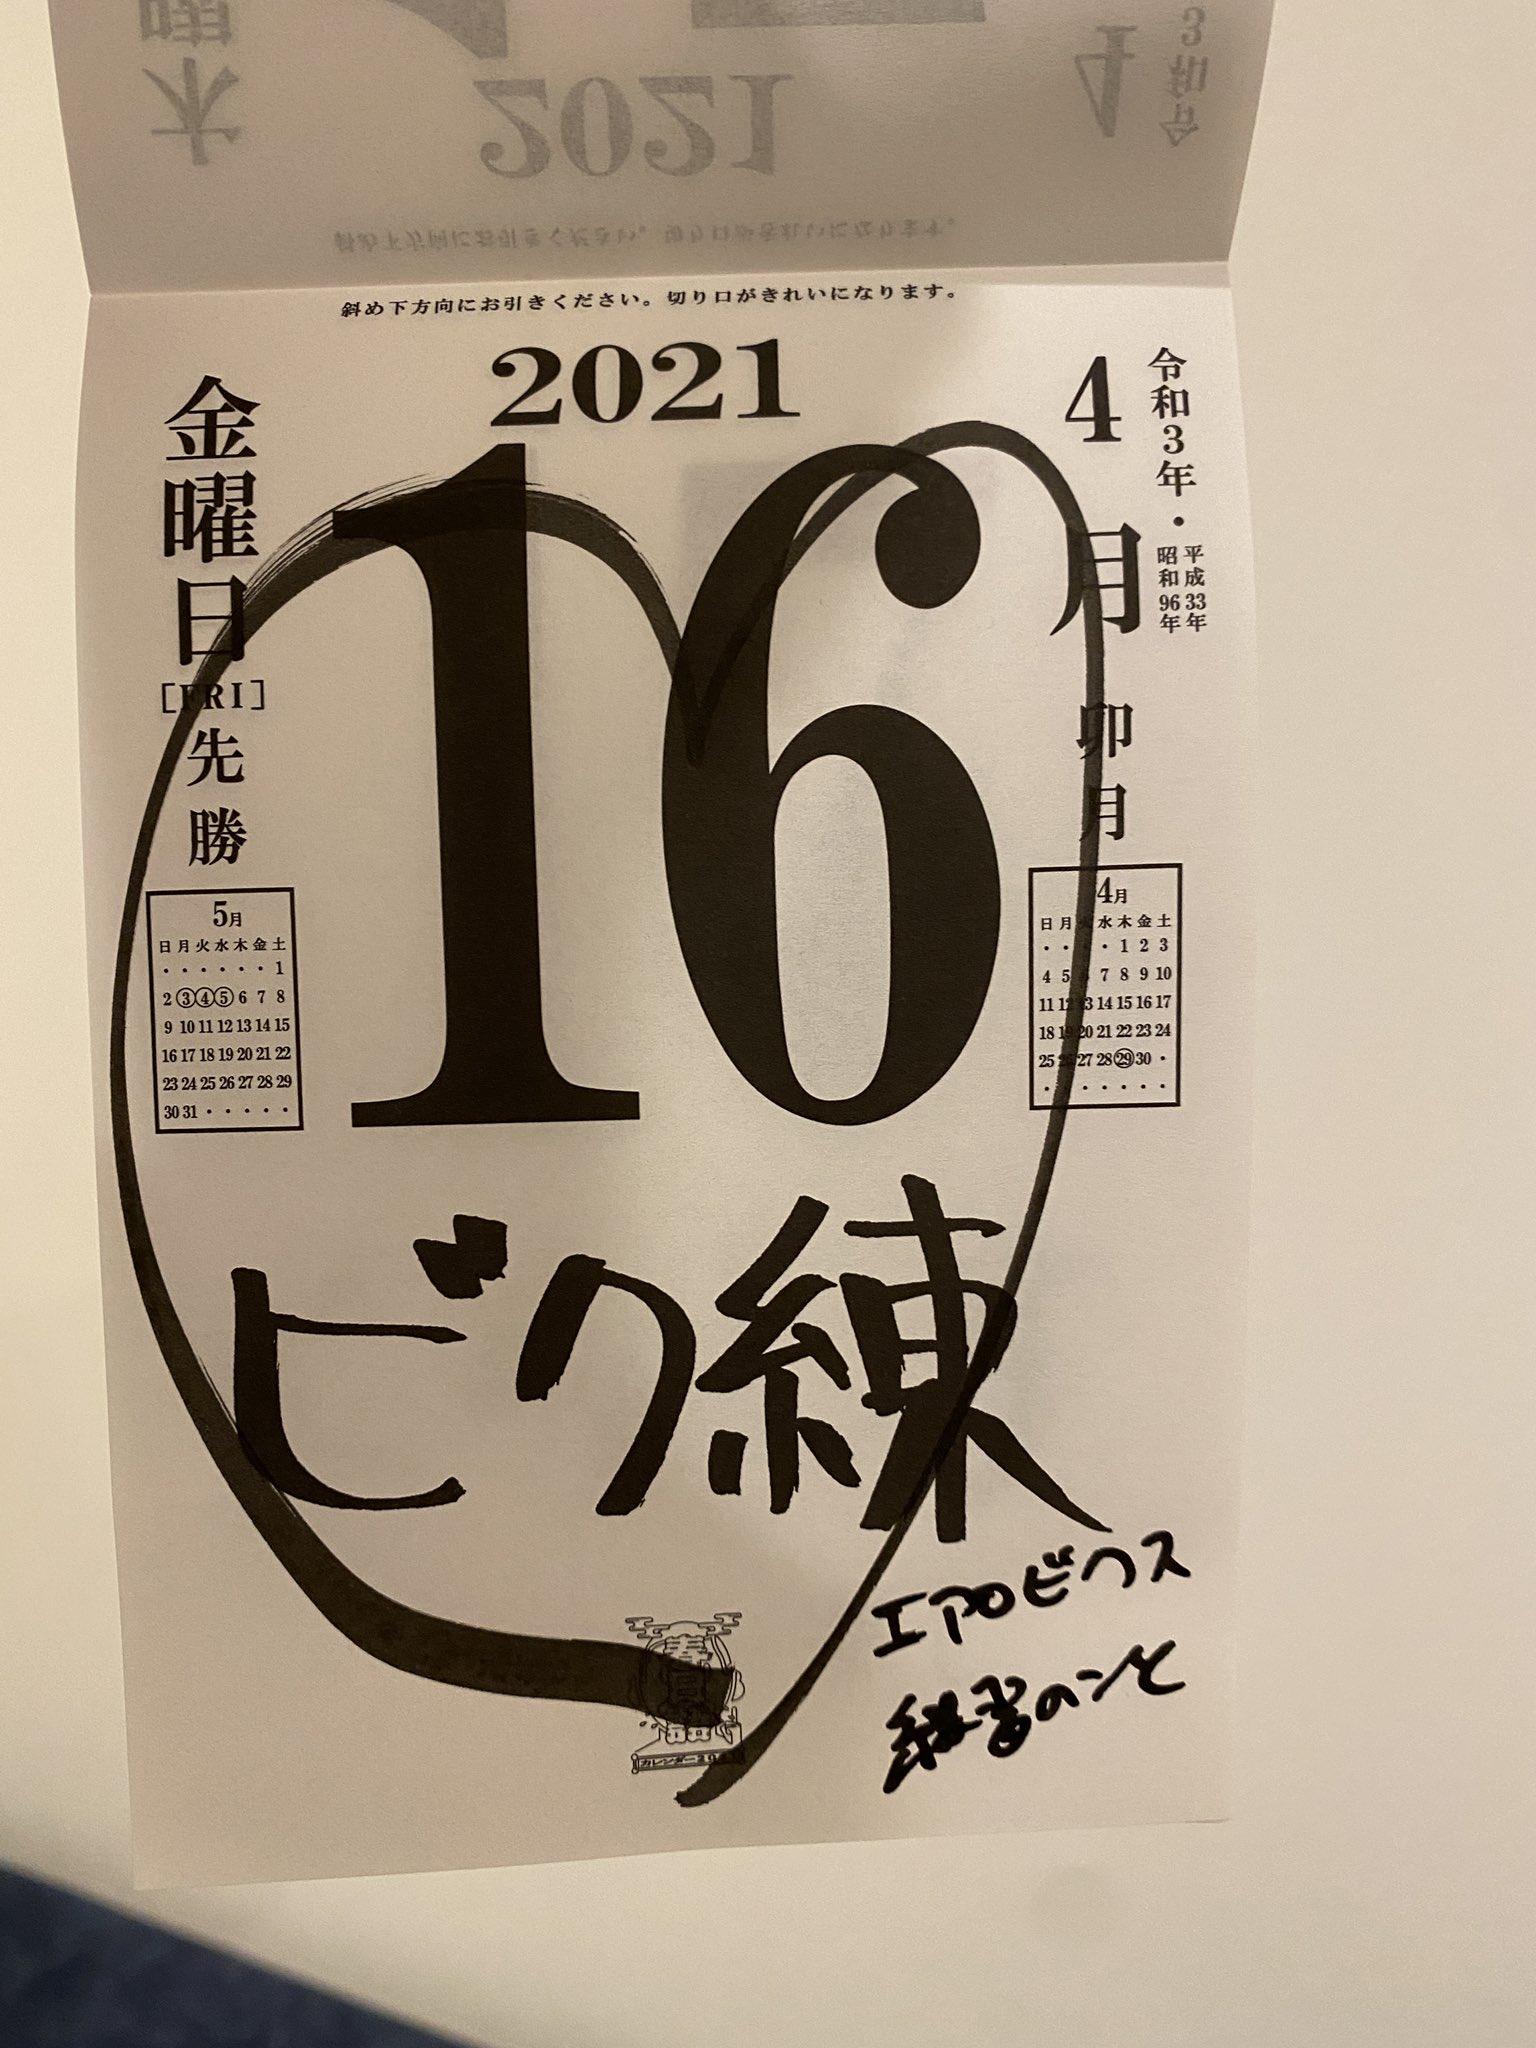 斜め下方向にお引きください。切り口がきれいになります。
2021
令和3年・平成33年
昭和96年
4月
卯月
16
金曜日
[FRI]
先勝
4月
日月火水木金土
・・・・1 2 3
4 5 6 7 8 9 10
11 12 13 14 15 16 17
18 19 20 21 22 23 24
25 26 27 28 29 30・
・・・・・・・
5月
日月火水木金土
・・・・・・1
2 3 4 5 6 7 8
9 10 11 12 13 14 15
16 17 18 19 20 21 22
23 24 25 26 27 28 29
30 31・・・・・
ビク練
IPOビクス
練習のこと
カレンダー